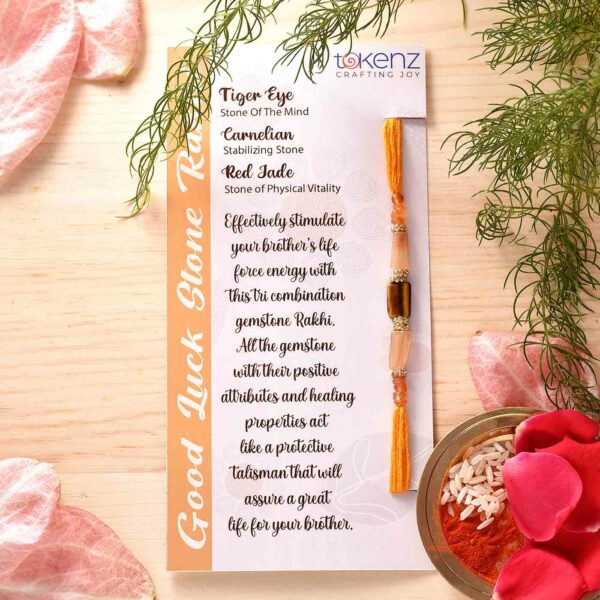 tokenz
CRAFTING JOY
Tiger Eye
Stone Of The Mind
Carnelian
Stabilizing Stone
Red Jade
Stone of Physical Vitality
Effectively stimulate
your brother's life
force energy with
this tri combination
gemstone Rakhi.
All the gemstone
with their positive
attributes and healing
properties act
like a protective
talisman that will
assure a great
life for your brother.
Good Luck Stone